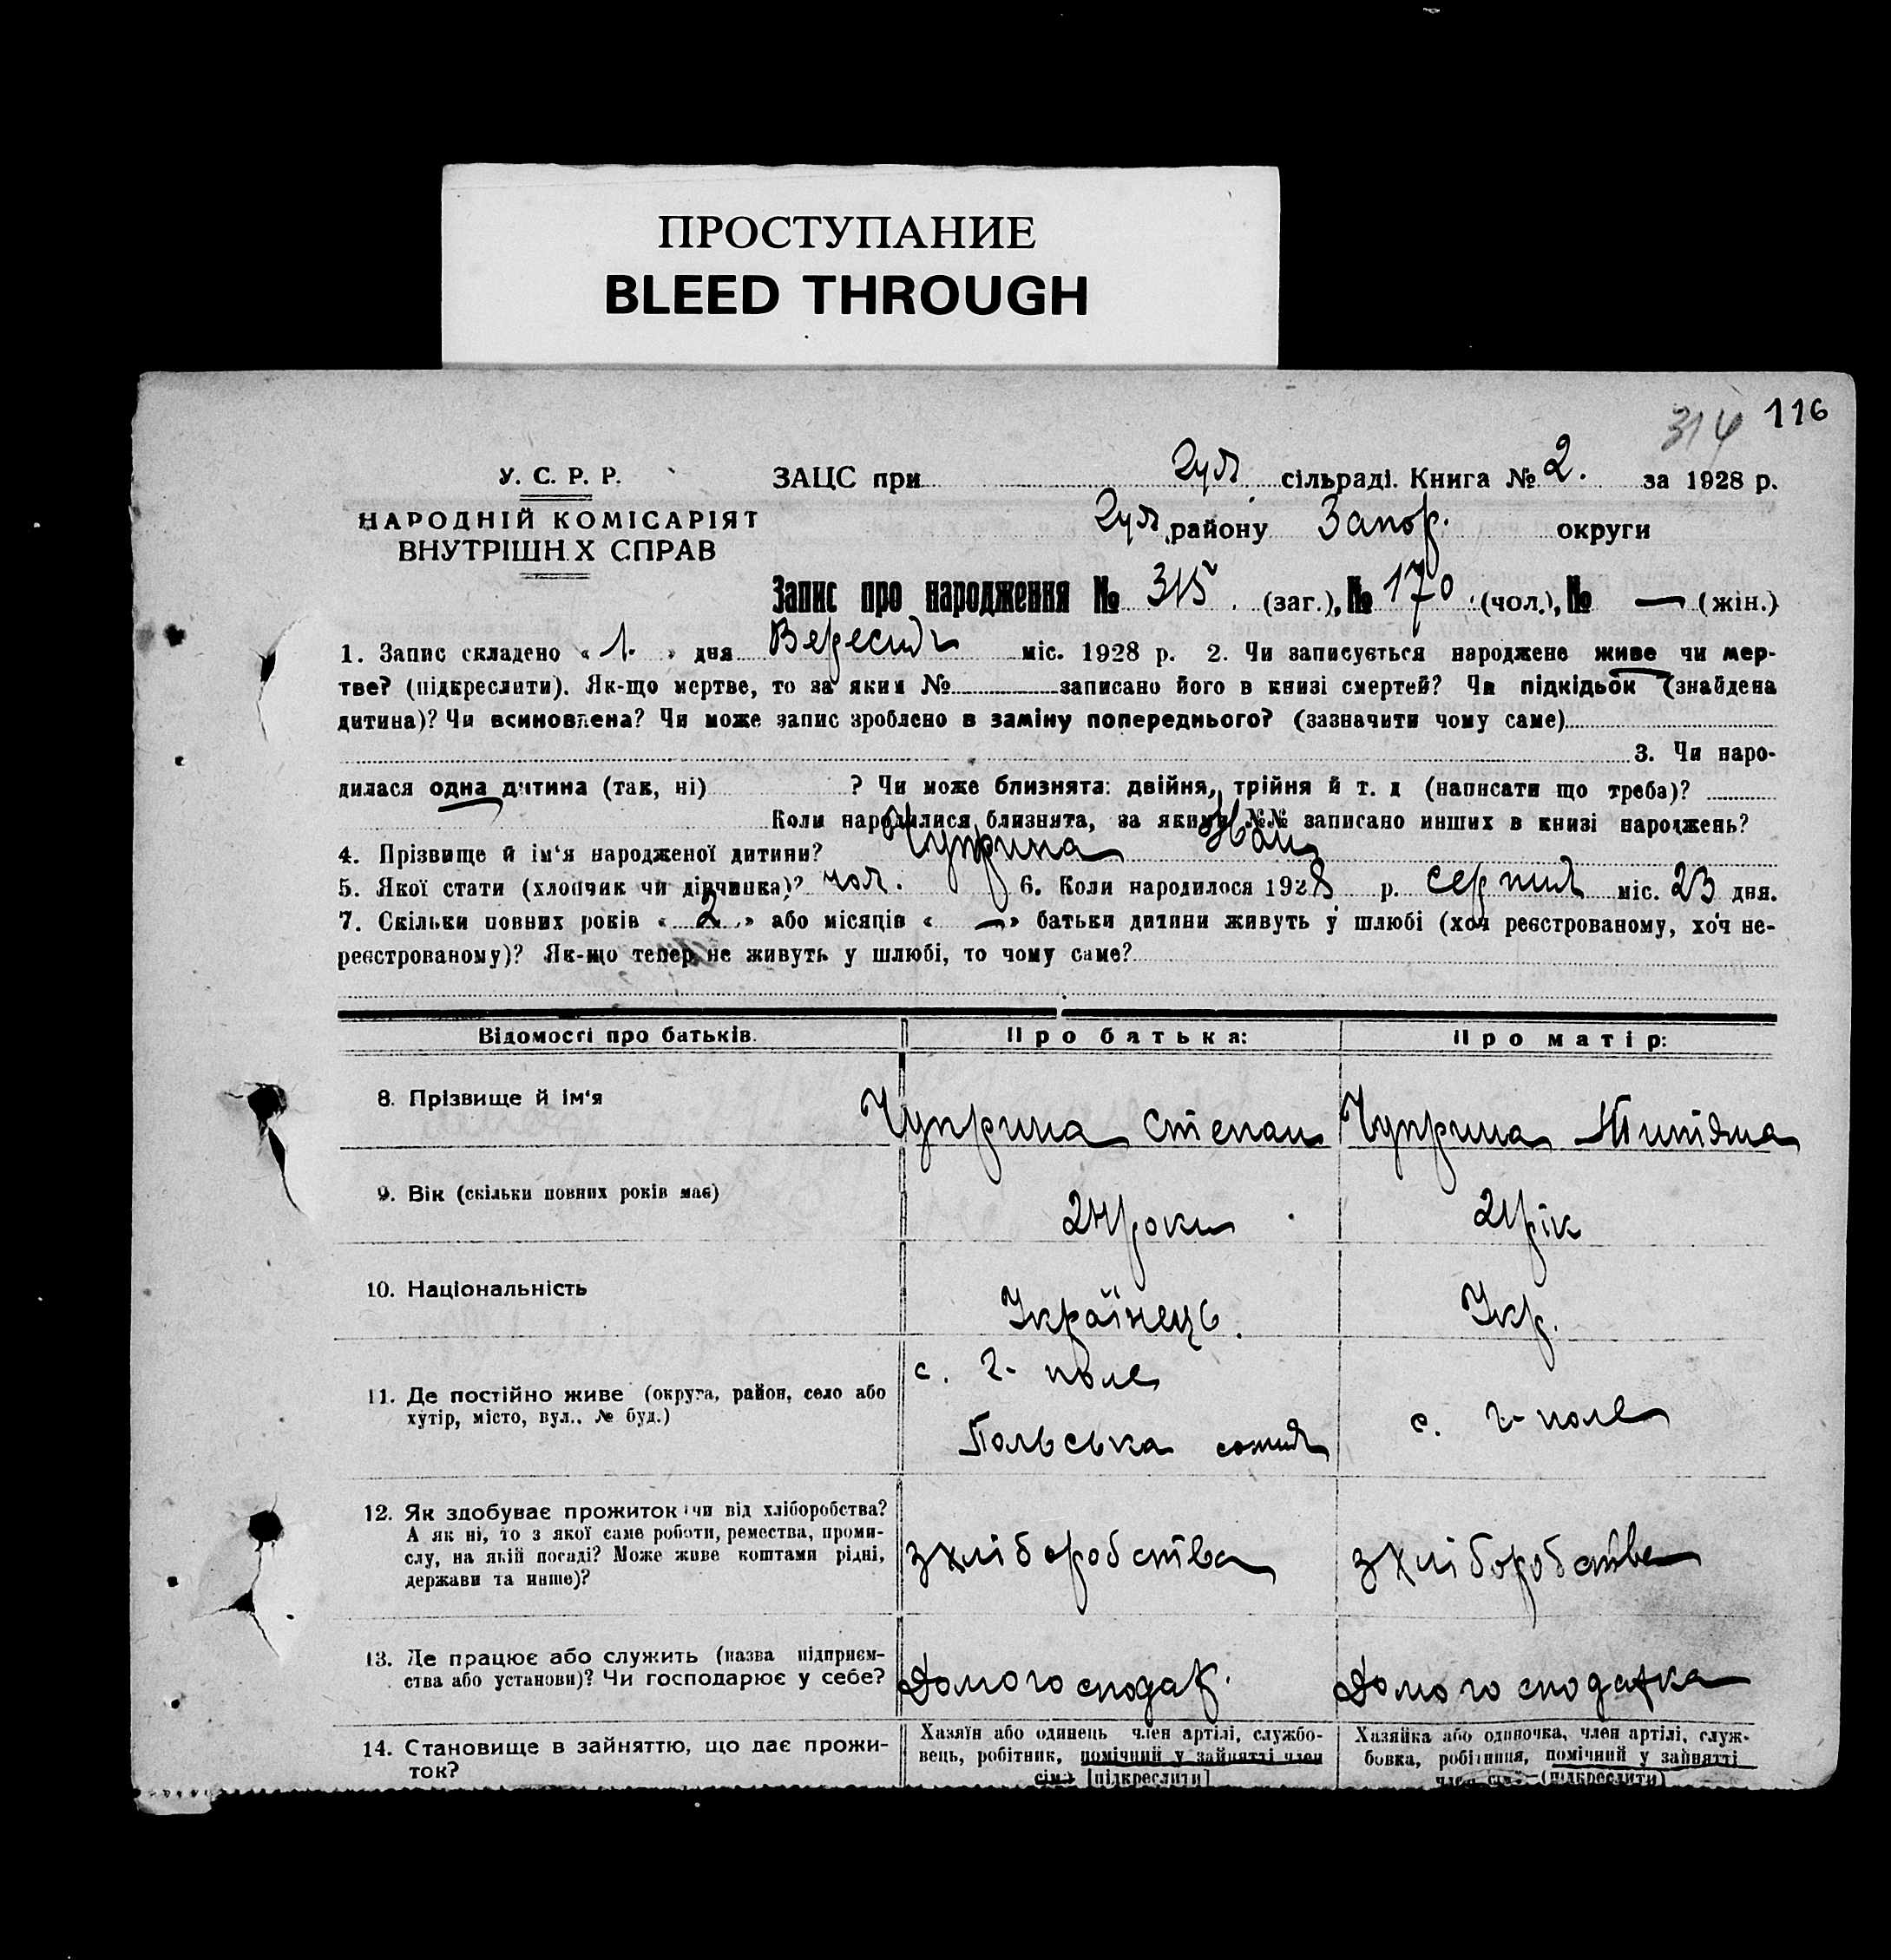 ПРОСТУПАНИЕ
BLEED THROUGH
314 116
У. С. Р. Р.
НАРОДНІЙ КОМІСАРІЯТ
ВНУТРІШН Х СПРАВ
ЗАЦС при Гул. сільраді. Книга № 2. за 1928 р.
Гул. району Запор. округи
Запис про народження № 315 (заг.), № 170 (чол.), № — (жін.)
1. Запис складено « 1. » дня Вересня міс. 1928 р. 2. Чи записується народжене живе чи мер-
тве? (підкреслити). Як-що мертве, то за яким № записано його в книзі смертей? Чи підкідьок (знайдена
дитина)? Чи всиновлена? Чи може запис зроблено в заміну попереднього? (зазначити чому саме)
3. Чи наро-
дилася одна дитина (так, ні) ? Чи може близнята: двійня, трійня й т. д (написати що треба)?
Коли народилися близнята, за якими №№ записано инших в книзі народжень?
4. Прізвище й ім‘я народженої дитини? Чуприна Іван
5. Якої стати (хлопчик чи дівчинка)? чол. 6. Коли народилося 1928 р. серпня міс. 23 дня.
7. Скільки повних років « 2 » або місяців « — » батьки дитини живуть у шлюбі (хоч реєстрованому, хоч не-
реєстрованому)? Як-що тепер не живуть у шлюбі, то чому саме?
Відомості про батьків. Про батька: Про матір:
8. Прізвище й ім‘я Чуприна Степан Чуприна
9. Вік (скільки повних років має) 24 роки 21 рік
10. Національність Українець. Укр.
11. Де постійно живе (округа, район, село або
хутір, місто, вул.. № буд.)
с. Г- поле
Польська сотня
с. Г-поле
12. Як здобуває прожиток чи від хліборобства?
А як ні, то з якої саме роботи, ремества, проми-
слу, на якій посаді? Може живе коштами рідні,
держави та инше)?
з хліборобства з хліборобства
13. Де працює або служить (назва підприєм-
ства або установи)? Чи господарює у себе?
Домогосподар. Домогосподарка
14. Становище в зайняттю, що дає прожи-
ток?
Хазяїн або одинець член артілі, службо-
вець, робітник, помічний у зайнятті член
сім‘ї [підкреслити]
Хазяйка або одиночка, член артілі, служ-
бовка, робітниця, помічний у зайнятті
член сім‘ї (підкреслити)